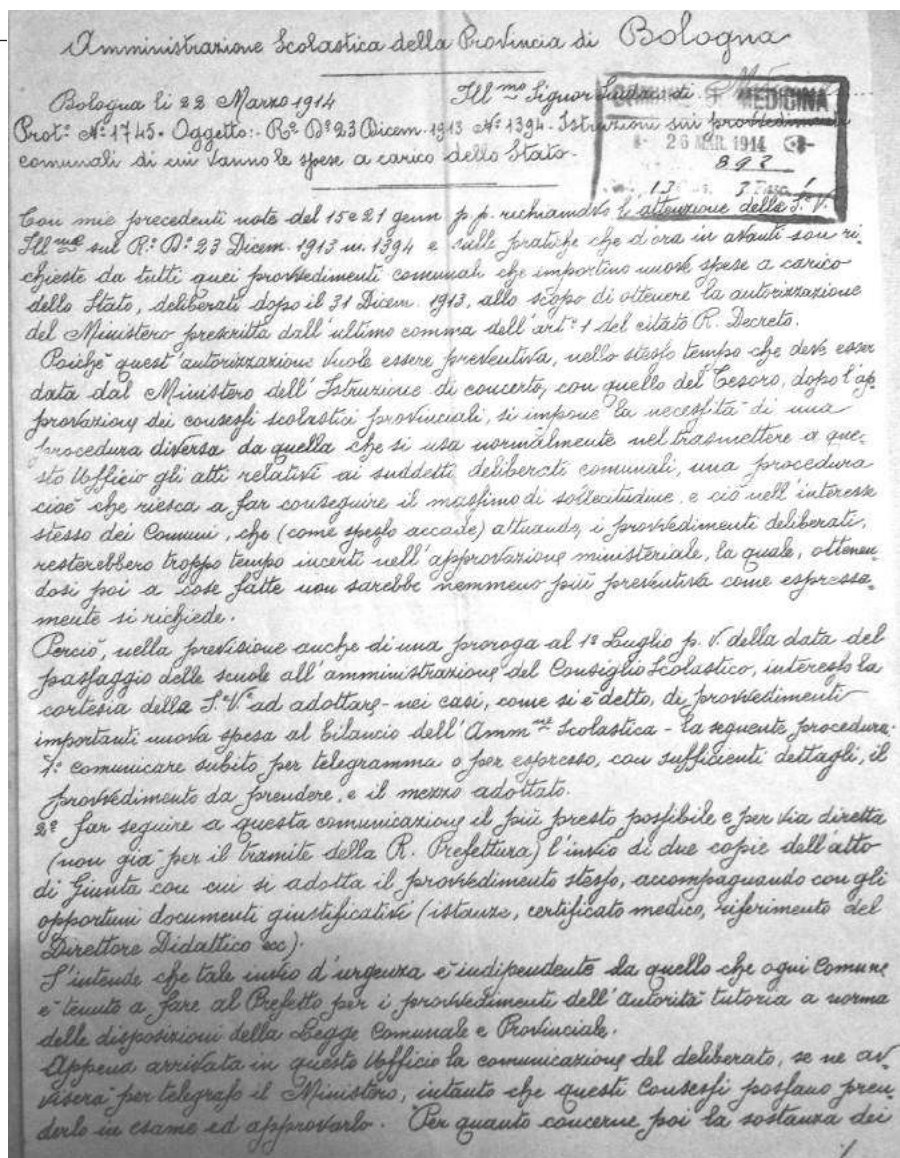 Amministrazione Scolastica della Provincia di Bologna
Bologna li 22 Marzo 1914 Ill.mo Signor Sindaco di
COMUNE DI MEDICINA
Prot: N: 1745. Oggetto: - R.º D.º 23 Dicem. 1913 Nº 1394. Istruzioni sui provvedimenti
26 MAR. 1914
comunali di cui vanno le spese a carico dello Stato.
892
13 3
Con mie precedenti note del 15 e 21 genn p. p. richiamavo l'attenzione della S. V.
Ill.ma sul R: D: 23 Dicem. 1913 n. 1394 e sulle pratiche che d'ora in avanti son ri-
chieste da tutti quei provvedimenti comunali che importino nuove spese a carico
dello Stato, deliberati dopo il 31 Dicem. 1913, allo scopo di ottenere la autorizzazione
del Ministero prescritta dall'ultimo comma dell'art: 1 del citato R. Decreto.
Poichè quest'autorizzazione vuole essere preventiva, nello stesso tempo che deve esser
data dal Ministero dell'Istruzione di concerto, con quello del Tesoro, dopo l'ap-
provazione dei consessi scolastici provinciali, si impone la necessità di una
procedura diversa da quella che si usa normalmente nel trasmettere a que-
sto Ufficio gli atti relativi ai suddetti deliberati comunali, una procedura
cioè che riesca a far conseguire il massimo di sollecitudine, e ciò nell'interesse
stesso dei Comuni, che (come spesso accade) attuando, i provvedimenti deliberati,
resterebbero troppo tempo incerti nell'approvazione ministeriale, la quale, ottenen-
dosi poi a cose fatte non sarebbe nemmeno più preventiva come espressa-
mente si richiede.
Perciò, nella previsione anche di una proroga al 1º Luglio p. v. della data del
passaggio delle scuole all'amministrazione del Consiglio Scolastico, interesso la
cortesia della S. V. ad adottare - nei casi, come si è detto, di provvedimenti
importanti nuova spesa al bilancio dell'Amm.ne Scolastica - la seguente procedura:
1: comunicare subito per telegramma o per espresso, con sufficienti dettagli, il
provvedimento da prendere, e il mezzo adottato.
2º far seguire a questa comunicazione il più presto possibile e per via diretta
(non già per il tramite della R. Prefettura) l'invio di due copie dell'atto
di Giunta con cui si adotta il provvedimento stesso, accompagnando con gli
opportuni documenti giustificativi (istanze, certificato medico, riferimento del
Direttore Didattico ecc).
S'intende che tale invio d'urgenza è indipendente da quello che ogni Comune
è tenuto a fare al Prefetto per i provvedimenti dell'autorità tutoria a norma
delle disposizioni della Legge Comunale e Provinciale.
Appena arrivata in questo Ufficio la comunicazione del deliberato, se ne av-
viserà per telegrafo il Ministero, intanto che questi Consessi possano pren-
derlo in esame ed approvarlo. Per quanto concerne poi la sostanza dei
./